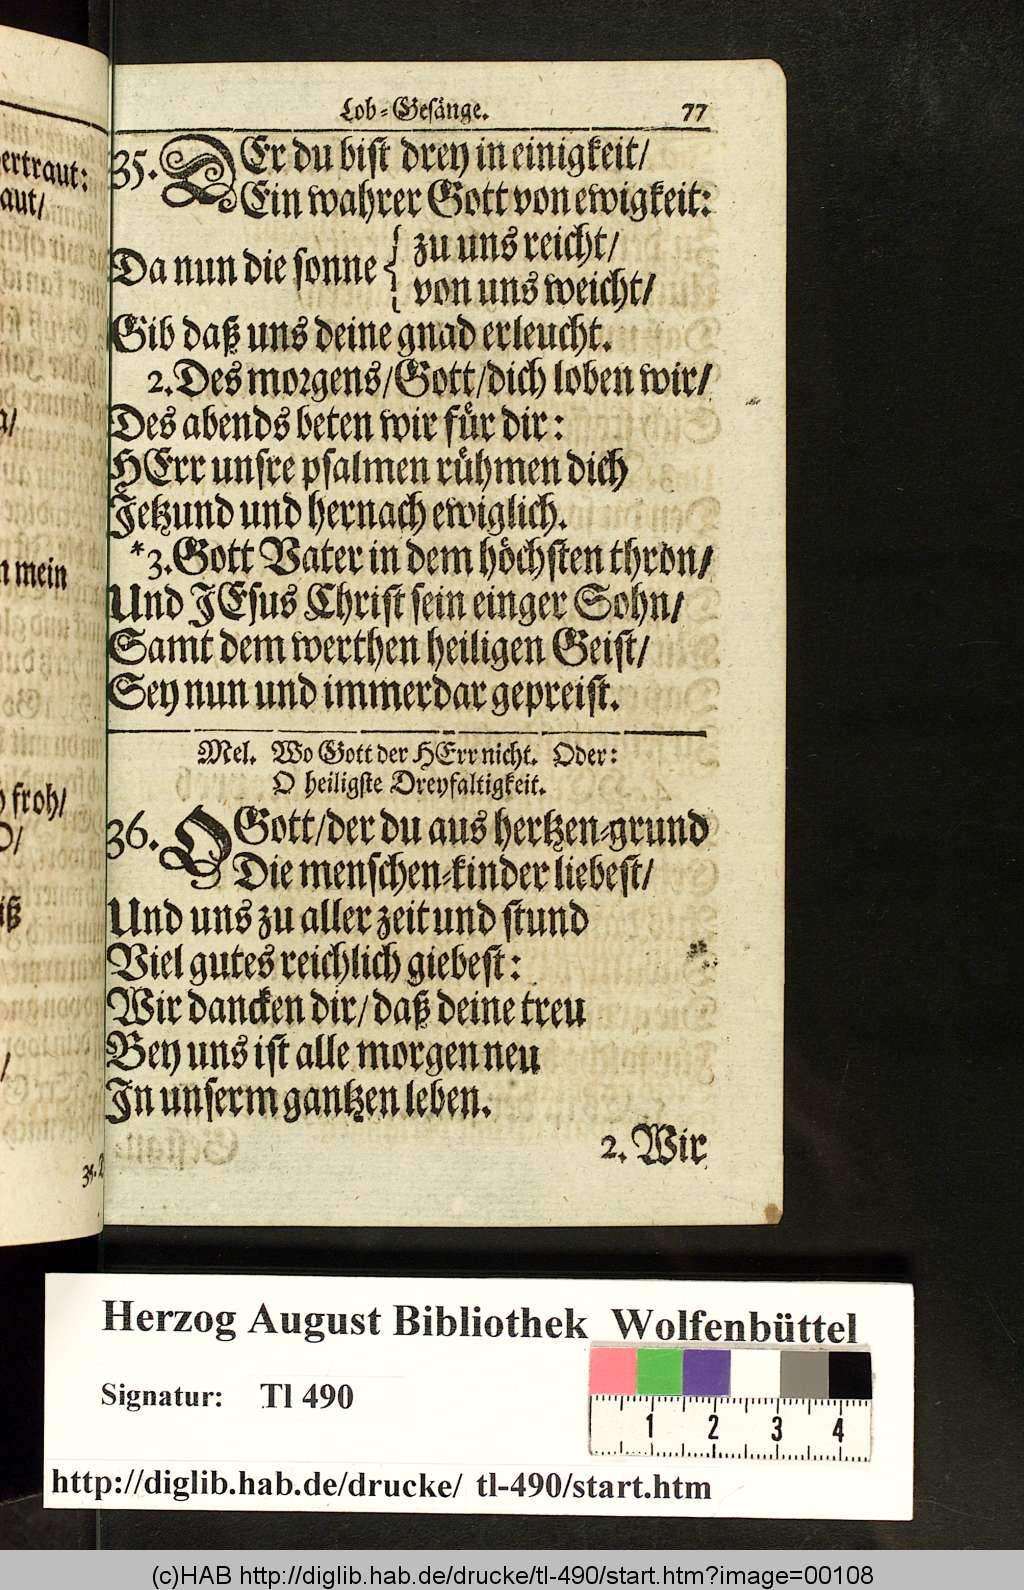 ertraut:
aut/
n mein
froh/
iß
Lob-Gesänge. 77
35. DEr du bist drey in einigkeit/
Ein wahrer Gott von ewigkeit:
Da nun die sonne { zu uns reicht/
von uns weicht/
Gib daß uns deine gnad erleucht.
2. Des morgens/Gott/dich loben wir/
Des abends beten wir für dir:
HErr unsre psalmen rühmen dich
Jetzund und hernach ewiglich.
*3. Gott Vater in dem höchsten thron/
Und JEsus Christ sein einger Sohn/
Samt dem werthen heiligen Geist/
Sey nun und immerdar gepreist.
Mel. Wo Gott der HErr nicht. Oder:
O heiligste Dreyfaltigkeit.
36. O Gott/der du aus hertzen-grund
Die menschen-kinder liebest/
Und uns zu aller zeit und stund
Viel gutes reichlich giebest:
Wir dancken dir/daß deine treu
Bey uns ist alle morgen neu
In unserm gantzen leben.
2. Wir
Herzog August Bibliothek Wolfenbüttel
Signatur: Tl 490
1 2 3 4
http://diglib.hab.de/drucke/ tl-490/start.htm
(c)HAB http://diglib.hab.de/drucke/tl-490/start.htm?image=00108